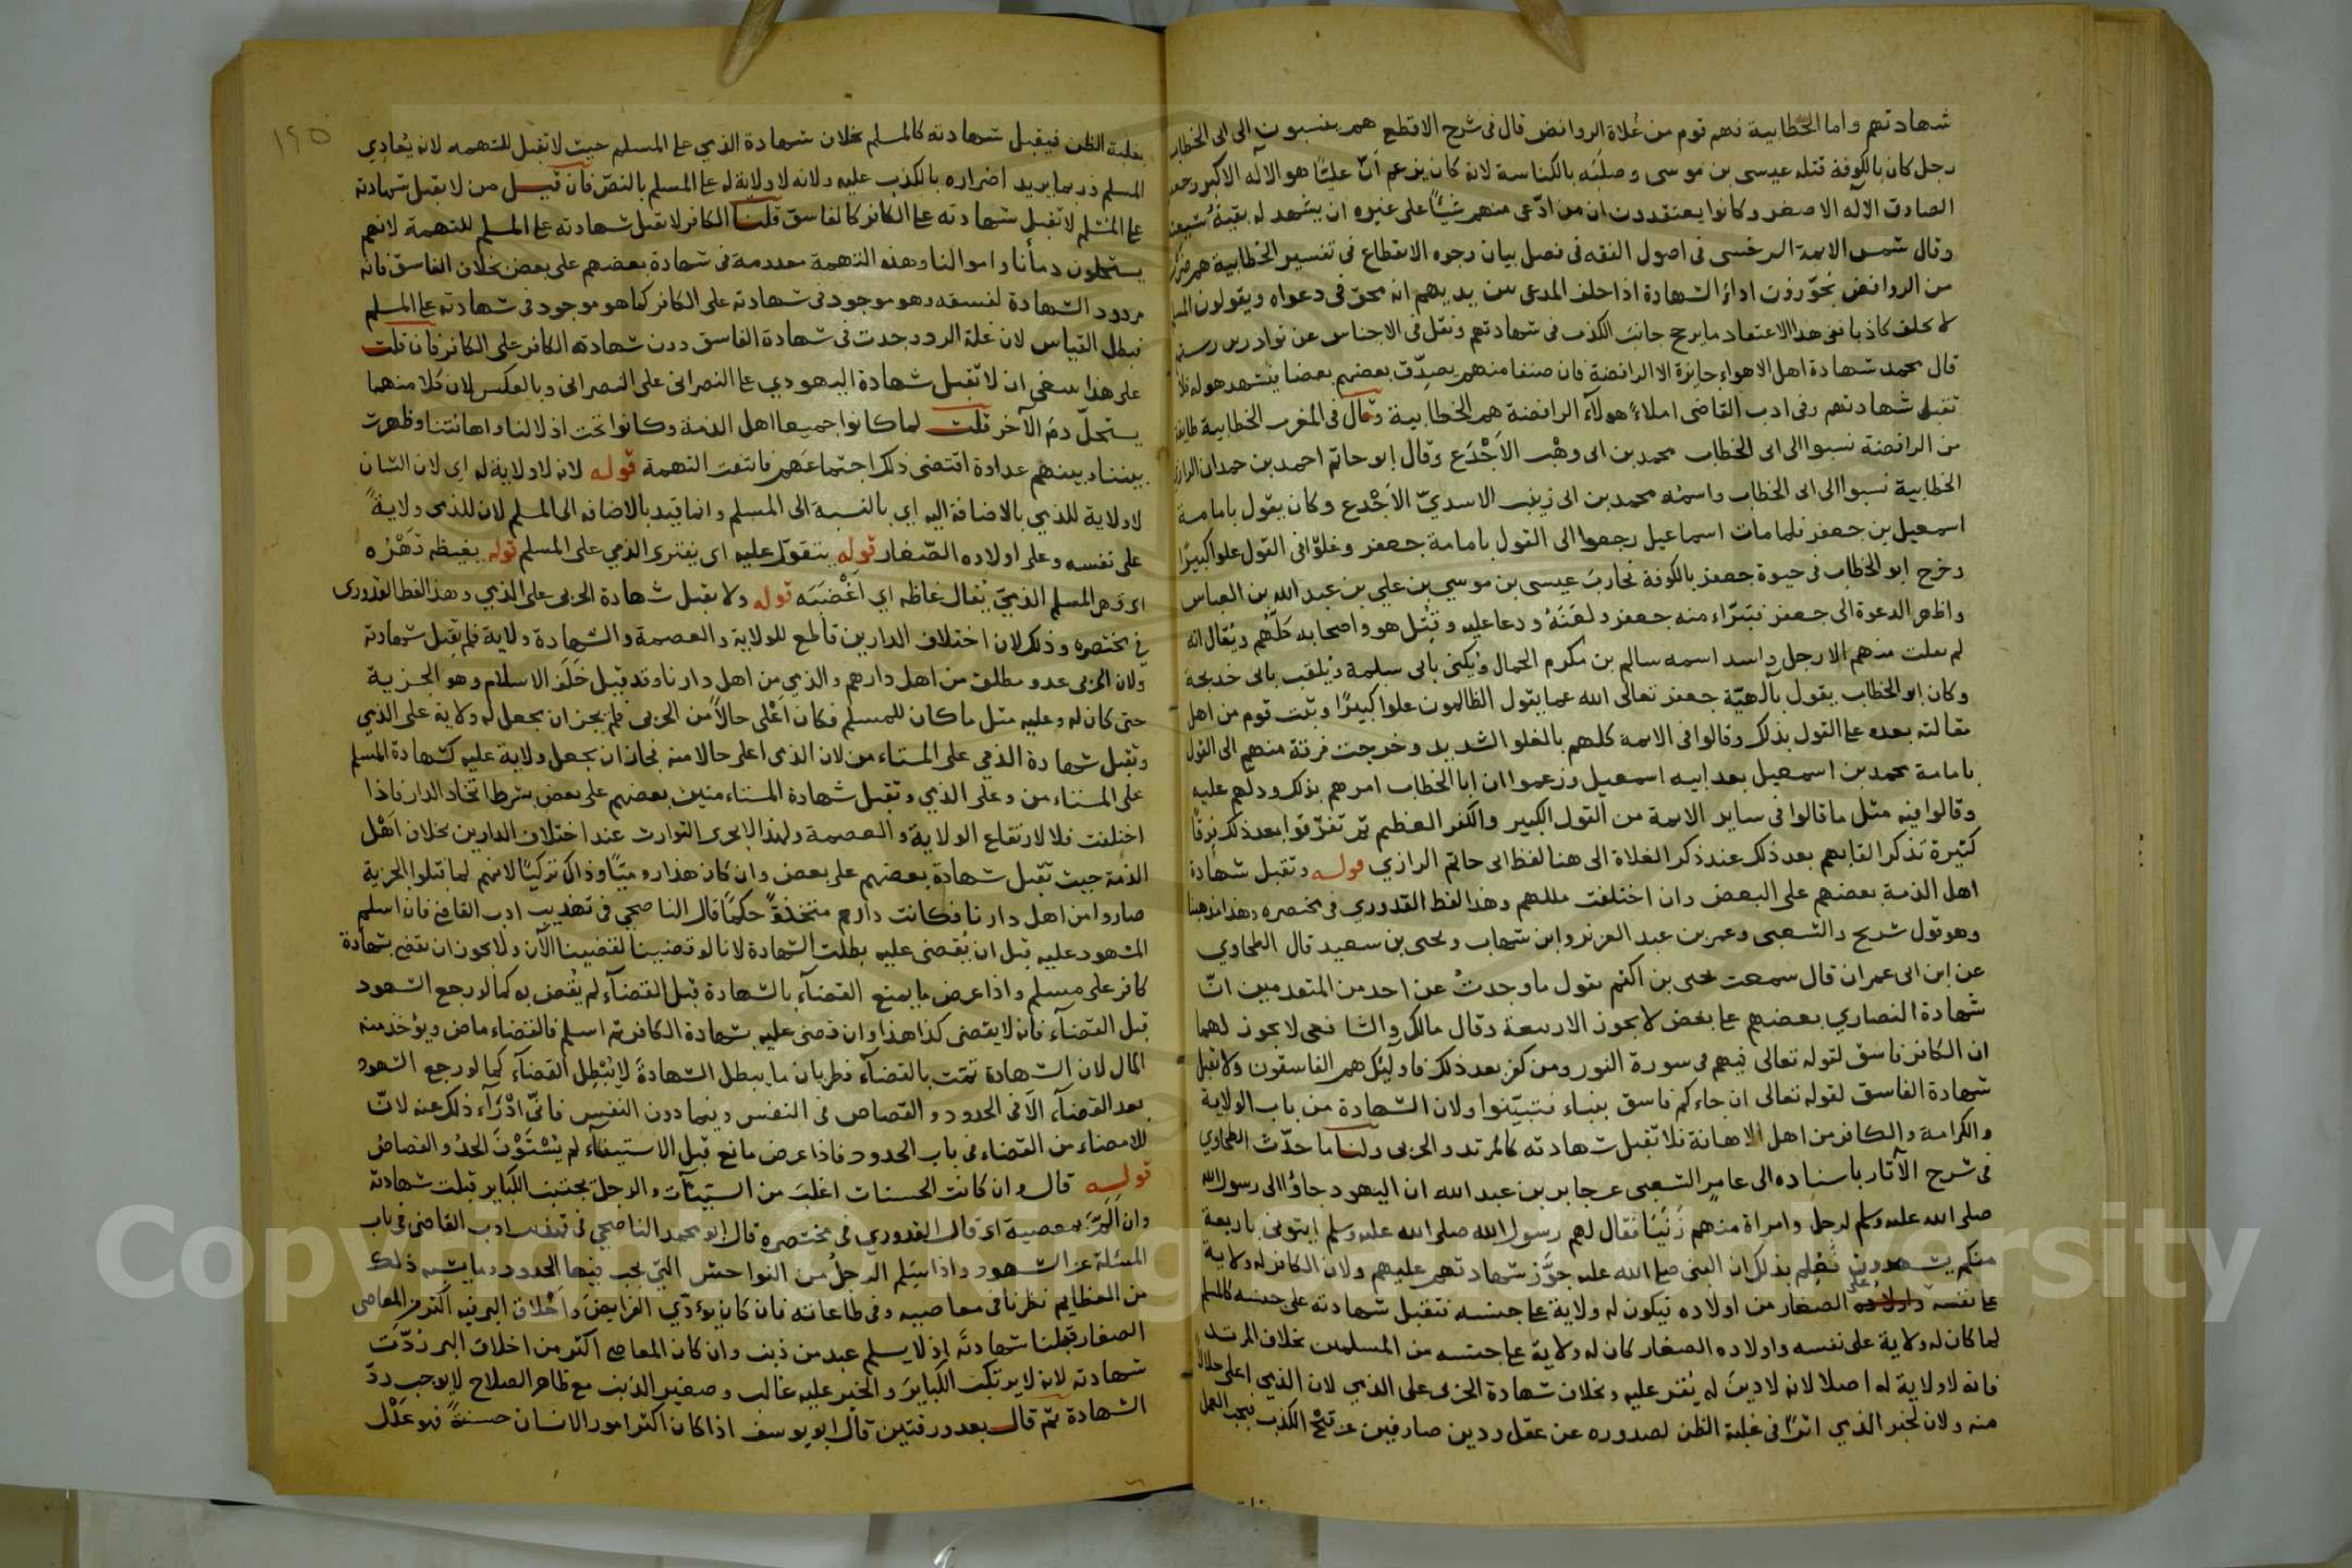 شهادتهم واما الخطابية فهم قوم من غلاة الروافض قال فى شرح الاقطع هم ينسبون الى ابى الخطاب
رجل كان بالكوفة قتله عيسى بن موسى وصلبه بالكناسة لانه كان يزعم ان عليًّا هو الاله الاكبر وجعفر
الصادق الاله الاصغر وكانوا يعتقدون ان من ادّعى منهم شيئًا على غيره ان يشهد له بقية شيعته
وقال شمس الائمة السرخسى فى اصول الفقه فى فصل بيان وجوه الانقطاع فى تفسير الخطابية هم
من الروافض يجوّزون اداء الشهادة اذا حلف المدعى بين يديهم انه محق فى دعواه ويقولون المسلم
لا يحلف كاذبا ففى هذا الاعتقاد ما يرجح جانب الكذب فى شهادتهم ونقل فى الاجناس عن نوادر بن رستم
قال محمد شهادة اهل الاهواء جايزة الا الرافضة فان صنفا منهم يصدّق بعضهم بعضا فيشهد هو له فلا
تقبل شهادتهم وفى ادب القاضى املاءً هولآء الرافضة هم الخطابية وقال فى المغرب الخطابية طايفة
من الرافضة نسبوا الى ابى الخطاب محمد بن ابى وهب الاجْدَع وقال ابو حاتم احمد بن حمدان الرازى
الخطابية نسبوا الى ابى الخطاب واسمه محمد بن ابى زينب الاسديّ الاجْدع وكان يقول بامامة
اسمعيل بن جعفر فلما مات اسماعيل رجعوا الى القول بامامة جعفر وغلوّا فى القول علوا كبيرًا
وخرج ابو الخطاب فى حيوة جعفر بالكوفة فحارب عيسى بن موسي بن علي بن عبد الله بن العباس
واظهر الدعوة الى جعفر فتبرّاء منه جعفر ولعَنَهُ ودعا عليه وقُتل هو واصحابه كلّهم ويُقال انه
لم يفلت منهم الا رجل واحد اسمه سالم بن مكرم الجمال ويُكنى بابى سلمة ويُلقب بابى خديجة
وكان ابو الخطاب يقول بآلهيّة جعفر تعالى الله عما يقول الظالمون علوا كبيرًا وثبت قوم من اهل
مقالته بعده على القول بذلك وقالوا فى الائمة كلهم بالغلو الشديد وخرجت فرقة منهم الى القول
بامامة محمد بن اسمعيل بعد ابيه اسمعيل وزعموا ان ابا الخطاب امرهم بذلك ودلّهم عليه
وقالوا فيه مثل ما قالوا فى ساير الائمة من القول الكبير والكفر العظيم ثم تفرّقوا بعد ذلك فِرقًا
كثيرة نذكر القابهم بعد ذلك عند ذكر الغلاة الى هنا لفظ ابى حاتم الرازي قوله وتقبل شهادة
اهل الذمة بعضهم على البعض وان اختلفت مللهم وهذا لفظ القدوري فى مختصره وهذا مذهبنا
وهو قول شريح والشعبى وعمر بن عبد العزيز وابن شهاب ويحيى بن سعيد قال الطحاوي
عن ابن ابى عمران قال سمعت يحيى بن اكثم يقول ما وجدتُ عن احد من المتقدمين انّ
شهادة النصاري بعضهم على بعض لا يجوز الا ربيعة وقال مالك والشافعى لا يجوز لهما
ان الكافر فاسق لقوله تعالى فيهم فى سورة النور ومن كفر بعد ذلك فاوليٓك هم الفاسقون ولا تقبل
شهادة الفاسق لقوله تعالى ان جاءكم فاسق بنباء فتبيّنوا ولان الشهادة من باب الولاية
والكرامة والكافر من اهل الاهانة فلا تقبل شهادته كالمرتد والحربى ولنا ما حدّث الطحاوي
فى شرح الآثار باسناده الى عامر الشعبى عن جابر بن عبد الله ان اليهود جاؤا الى رسول الله
صلى الله عليه وسلم لرجل وامراة منهم زَنَيَا فقال لهم رسول الله صلى الله عليه وسلم ايتونى باربعة
منكم يشهدون فَعُلِم بذلك ان النبى صلى الله عليه جوّز شهادتهم عليهم ولان الكافر له ولاية
على نفسه وعلى الصغار من اولاده فيكون له ولاية على جنسه فتقبل شهادته على جنسه كالمسلم
لما كان له ولاية على نفسه واولاده الصغار كان له ولاية على جنسه من المسلمين بخلاف المرتد
فانه لا ولاية له اصلا لانه لا دينَ له يُقَر عليه وبخلاف شهادة الحربى على الذمي لان الذمي اعلى حالا
منه ولان لخبر الذمي اثرًا فى غلبة الظن لصدوره عن عقل ودين صارفين عن قبْح الكذب فيجب العمل
١٩٥
بغلبة الظن فيقبل شهادته كالمسلم بخلاف شهادة الذمي على المسلم حيث لا تقبل للتهمه لانه يُعادِي
المسلم فربما يريد اضراره بالكذب عليه ولانه لا ولاية له على المسلم بالنصّ فان قيل من لا يقبل شهادته
على المسلم لا تقبل شهادته على الكافر كالفاسق قلنا الكافر لا تقبل شهادته على المسلم للتهمة لانهم
يستحلون دمأنا واموالنا وهذه التهمة معدومة فى شهادة بعضهم على بعض بخلاف الفاسق فانه
مردود الشهادة لفسقه وهو موجود فى شهادته على الكافر كما هو موجود فى شهادته على المسلم
فبطل القياس لان علة الرد وجدت فى شهادة الفاسق دون شهادته الكافر على الكافر فان قلت
على هذا ينبغى ان لا تقبل شهادة اليهودي على النصرانى على النصرانى وبالعكس لان كلا منهما
يستحلّ دمَ الآخر قلت لما كانوا جميعا اهل الذمة وكانوا تحت اذلالنا واهانتنا وظهرت
بيننا وبينهم عداوة اقتضى ذلك اجتماعَهم فانتفت التهمة قوله لانه لا ولاية له اى لان الشان
لا ولاية للذمي بالاضافة اليه اي بالنسبة الى المسلم وانما قيد بالاضافه الى المسلم لان للذمى ولايةً
على نفسه وعلى اولاده الصّغار قوله يتقوّل عليه اى يفترى الذمي على المسلم قوله يغيظه قَهْرُه
اى قهر المسلم الذميّ يُقال غاظه اي اَغْضَبَه قوله ولا يقبل شهادة الحربى على الذمي وهذا لفظ القدورى
في مختصره وذلك لان اختلاف الدارين قاطع للولاية والعصمة والشهادة ولاية فلم تقبل شهادته
ولان الحربى عدو مطلق من اهل دارهم والذمي من اهل دارنا وقد قبل خَلَفَ الاسلام وهو الجزية
حتى كان له وعليه مثل ما كان للمسلم فكان اعْلى حالاً من الحربى فلم يجز ان يجعل له ولاية على الذمي
وتقبل شهادة الذمي على المستاءمن لان الذمى اعلى حالا منه فجاز ان يجعل ولاية عليه كشهادة المسلم
على المستاءمن وعلى الذمي وتقبل شهادة المستاءمنين بعضهم على بعض بشرط اتحاد الدار فاذا
اختلفت فلا لارتقاع الولاية والعصمة ولهذا لا يجرى التوارث عند اختلاف الدارين بخلاف اهْل
الذمة حيث تقبل شهادة بعضهم على بعض وان كان هذا روميًّا وذاك تركيًّا لانهم لما قبلوا الجزية
صاروا من اهل دارنا فكانت دارهم متخذةً حكمًا قال الناصحي فى تهذيب ادب القاضى فان اسلم
المشهود عليه قبل ان يُقضى عليه بطلت الشهادة لانا لو قضينا لقضينا الآن ولا يجوز ان نقضى بشهادة
كافر على مسلم واذا عرض ما يمنع القضآء بالشهادة قبل القضآء لم يُقض به كما لو رجع الشهود
قبل القضآء فانه لا يقضى كذا هذا وان قضى عليه بشهادة الكافر ثم اسلم فالقضاء ماض ويؤخذ منه
المال لان الشهادة تمّت بالقضآء فطريان ما يبطل الشهادة لا يُبْطِل القضآء كما لو رجع الشهود
بعد القضآء الّا فى الحدود والقصاص فى النفس وفيما دون النفس فانّى ادْرَاء ذلك عنه لانّ
للامضاء من القضاء فى باب الحدود فاذا عرض مانع قبل الاستيفآء لم يُسْتَوْفَ الحدُ والقصاصُ
قوله قال وان كانت الحسنات اغلبَ من السّيّئآت والرجل يجتنب الكباير قبلت شهادته
وان اَلمَّ بمعصية اى قال القدوري فى مختصره قال ابو محمد الناصحي فى تهذيب ادب القاضى فى باب
المسئلة عن الشهود واذا سَلِم الرجلُ من الفواحش التى تجب فيها الحدود وما يشبه ذلك
من العظايم نظرنا فى معاصيه وفى طاعاته فان كان يوءَدّي الفرايضَ واخْلاق البر فيه اكثر من المعاصى
الصغار قبلنا شهادتَه اذ لا يسلم عبد من ذنب وان كان المعاصى اكثر من اخلاق البر رُدّت
شهادته لانه لا يرتكب الكبايرَ والخير عليه غالب وصغير الذنب مع ظاهر الصلاح لا يوجب ردّ
الشهادة ثم قال بعد ورقتين قال ابو يوسف اذا كان اكثر امور الانسان حسنةً فهو عَدْل
Copyright © King Saud University